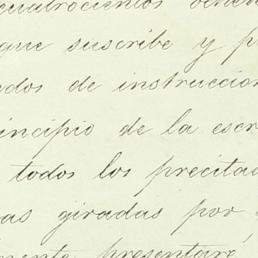 cuatrocientos
que suscribe y
de instruccion
incipio de la escr
todos los precitad
as giradas por
mente presentaré